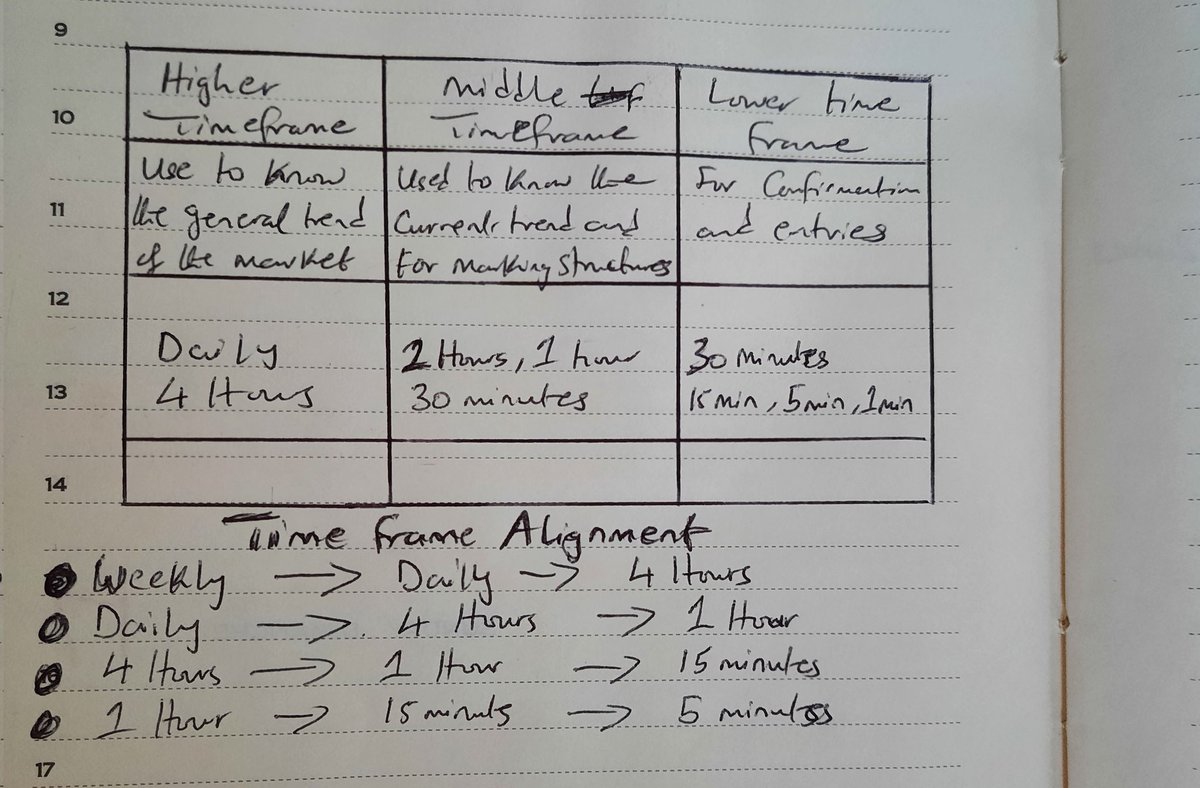 9
Higher Timeframe
middle Timeframe
Lower time frame
10
Use to know
the general trend
of the market
Used to know the
Current trend and
for marking structures
For Confirmation
and entries
11
12
Daily
4 Hours
2 Hours, 1 hour
30 minutes
30 minutes
15 min, 5min, 1min
13
14
Time frame Alignment
Weekly → Daily → 4 Hours
Daily → 4 Hours → 1 Hour
4 Hours → 1 Hour → 15 minutes
1 Hour → 15 minuts → 5 minutes
17